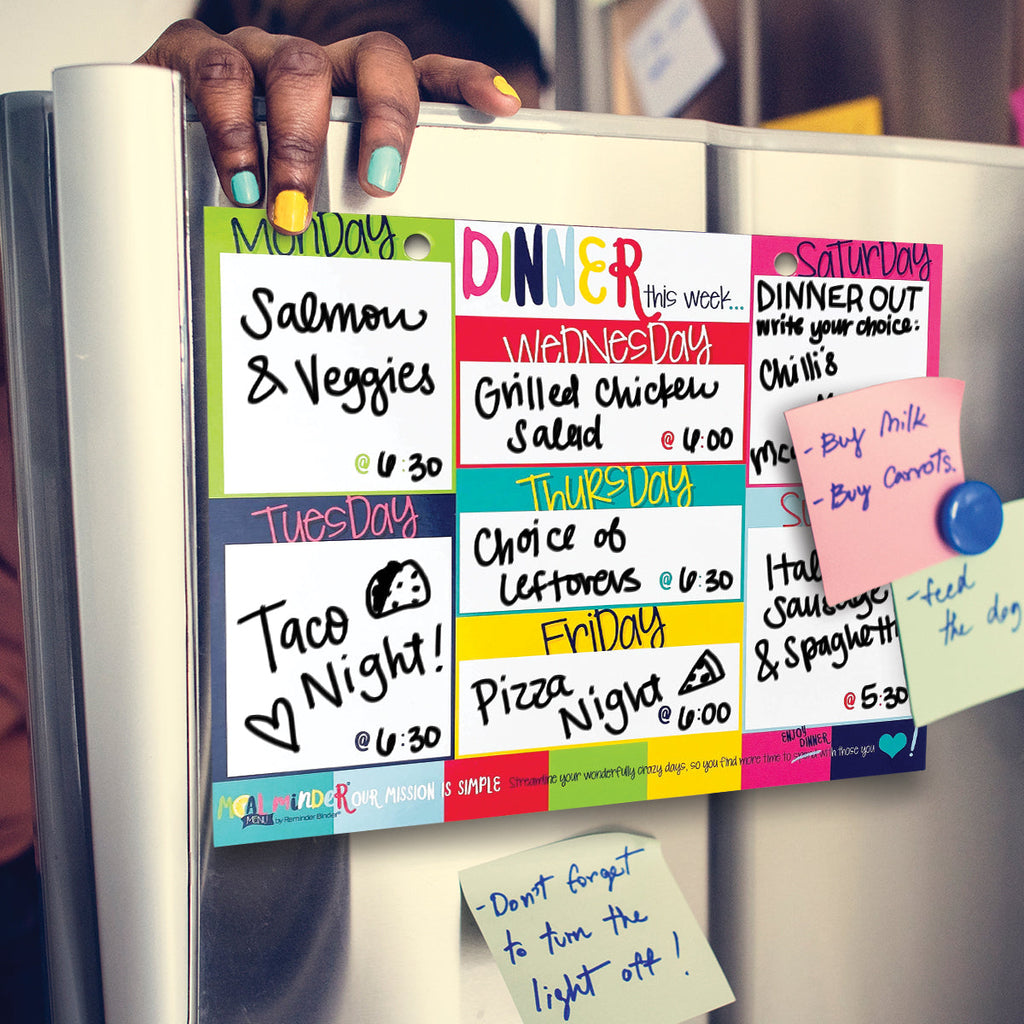 MONDAY
Salmon
& Veggies
@ 6:30
TUESDAY
Taco
Night!
@ 6:30
DINNER
this week...
WEDNESDAY
Grilled Chicken
Salad
@ 6:00
THURSDAY
Choice of
Leftovers @ 6:30
FRIDAY
Pizza
Night
@ 6:00
SATURDAY
DINNER OUT
write your choice:
Chilli's
SU
Sausage
& Spaghetti
@ 5:30
- Buy Milk
- Buy Carrots.
- feed
the dog
MEAL minDeR OUR MISSION IS SIMPLE Streamline your wonderfully crazy days, so you find more time to spend with those you !
ENJOY
DINNER
MENU by Reminder Binder®
- Don't forget
to turn the
light off!